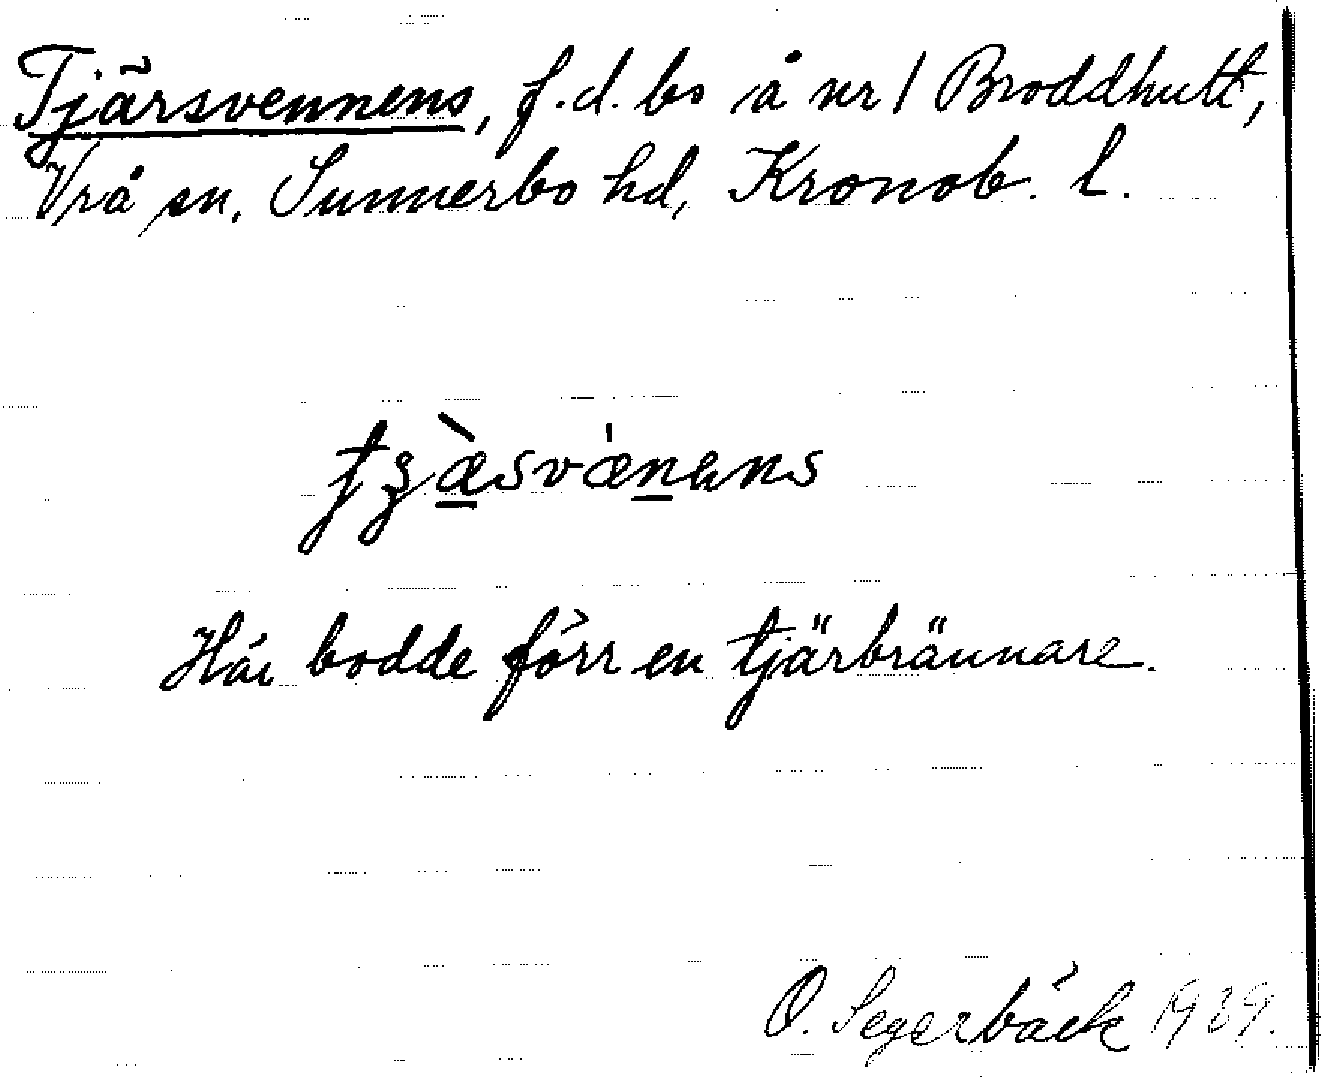 Tjärsvennens, f.d. bo å nr 1 Broddhult,
Vrå sn, Sunnerbo hd, Kronob. l.
tȝæ̀svæ̍nens
Här bodde förr en tjärbrännare.
O. Segerbäck 1939.